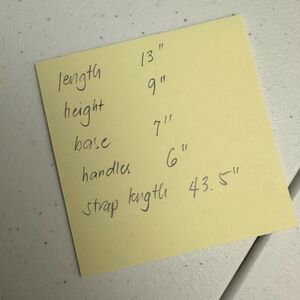 length 13"
height 9"
base 7"
handles 6"
strap length 43.5"